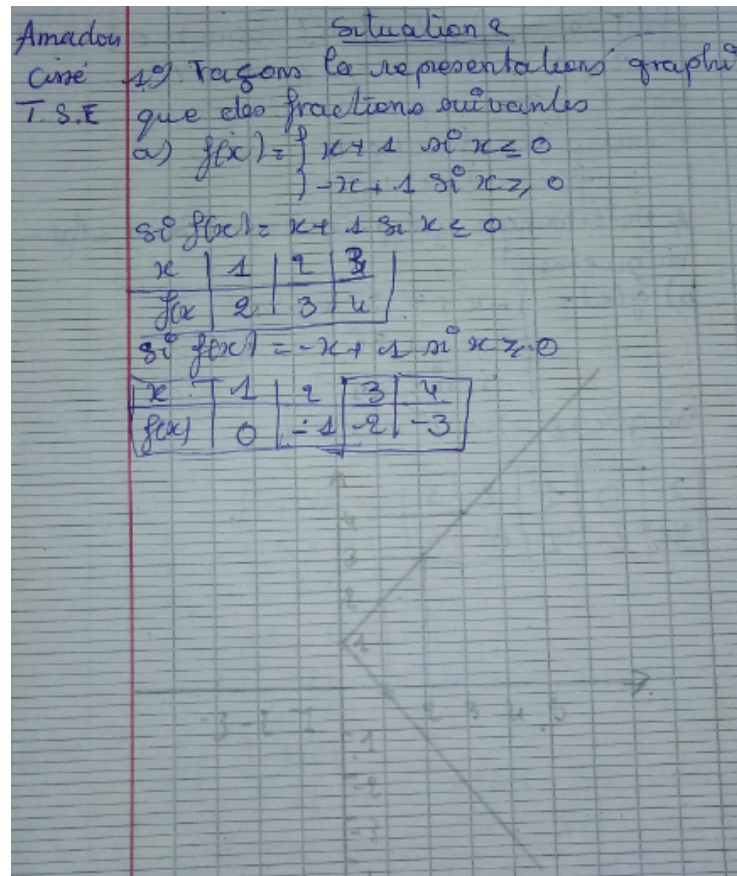 Situation 2
Amadou
Cissé
T.S.E
1º) Traçons la representations graphi
que des fractions suivantes
a) f(x) = { x + 1 si x ≤ 0
} -x + 1 si x ≥ 0
si f(x) = x + 1 si x ≤ 0
x | 1 | 2 | 3
f(x | 2 | 3 | 4
si f(x) = -x + 1 si x ≥ 0
x | 1 | 2 | 3 | 4
f(x) | 0 | -1 | -2 | -3
4
3
2
1
-3 -2 -1 2 3 4 5
-1
-2
-3